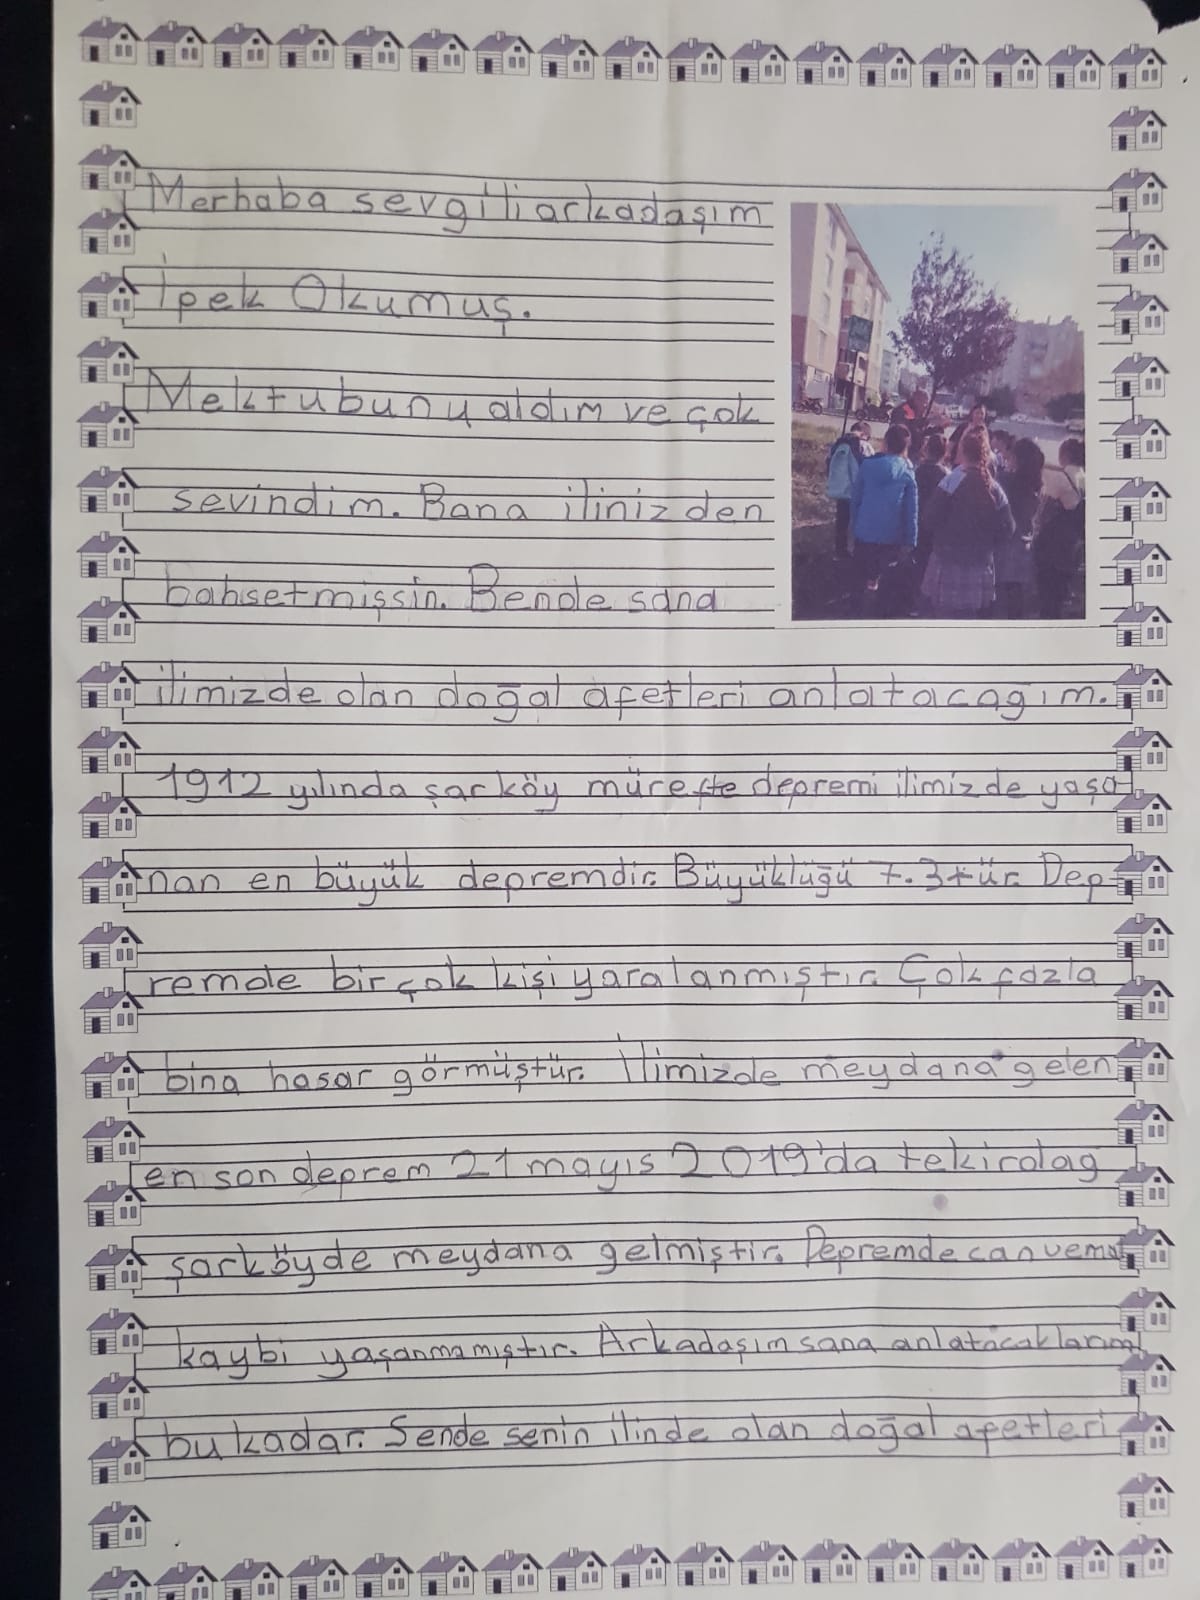 Merhaba sevgili arkadaşım
İpek Okumuş.
Mektubunu aldım ve çok
sevindim. Bana ilinizden
bahsetmişsin. Bende sana
ilimizde olan doğal afetleri anlatacağım.
1912 yılında şarköy mürefte depremi ilimizde yaşa
nan en büyük depremdir. Büyüklüğü 7.3tür. Dep
remde birçok kişi yaralanmıştır. Çok fazla
bina hasar görmüştür. İlimizde meydana gelen
en son deprem 21 mayıs 2019'da tekirdag
şarköyde meydana gelmiştir. Depremde can vemal
kaybi yaşanmamıştır. Arkadaşım sana anlatacaklarım
bu kadar. Sende senin ilinde olan doğal afetleri